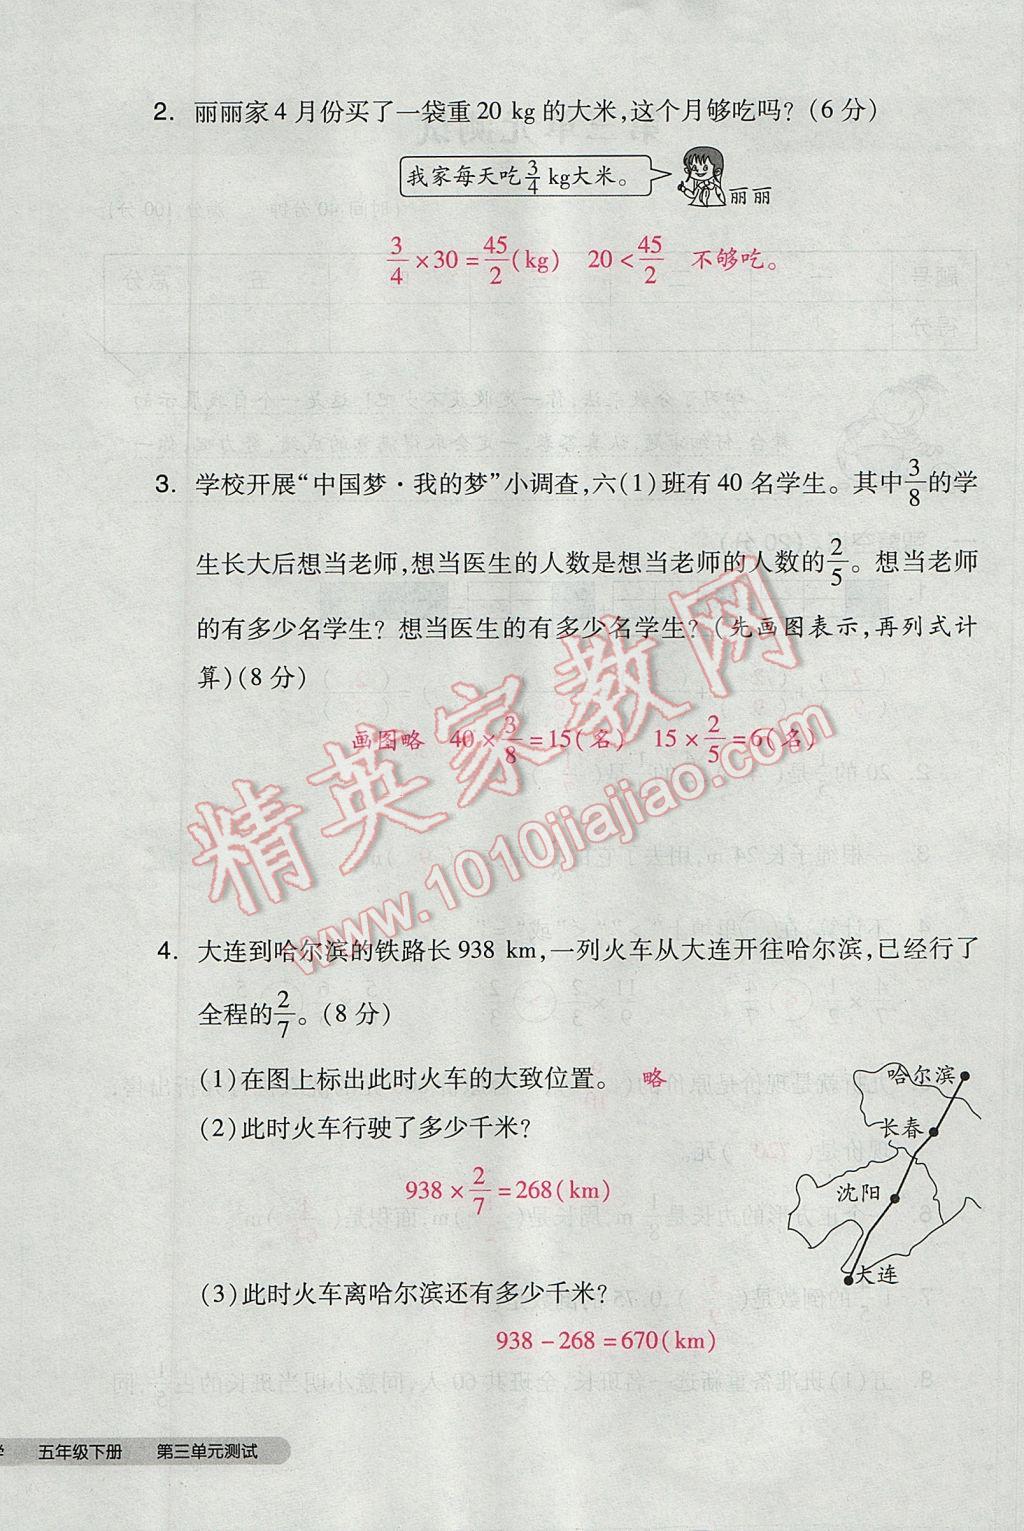 2. 丽丽家4月份买了一袋重20 kg的大米,这个月够吃吗?(6分)
我家每天吃3/4 kg大米。
丽丽
3/4×30=45/2(kg) 20<45/2 不够吃。
3. 学校开展“中国梦·我的梦”小调查,六(1)班有40名学生。其中3/8的学
生长大后想当老师,想当医生的人数是想当老师的人数的2/5。想当老师
的有多少名学生?想当医生的有多少名学生?(先画图表示,再列式计
算)(8分)
画图略 40×3/8=15(名) 15×2/5=6(名)
精英家教网
www.1010jiajiao.com
4. 大连到哈尔滨的铁路长938 km,一列火车从大连开往哈尔滨,已经行了
全程的2/7。(8分)
(1)在图上标出此时火车的大致位置。 略
(2)此时火车行驶了多少千米?
938×2/7=268(km)
(3)此时火车离哈尔滨还有多少千米?
938-268=670(km)
哈尔滨
长春
沈阳
大连
学 五年级下册 第三单元测试